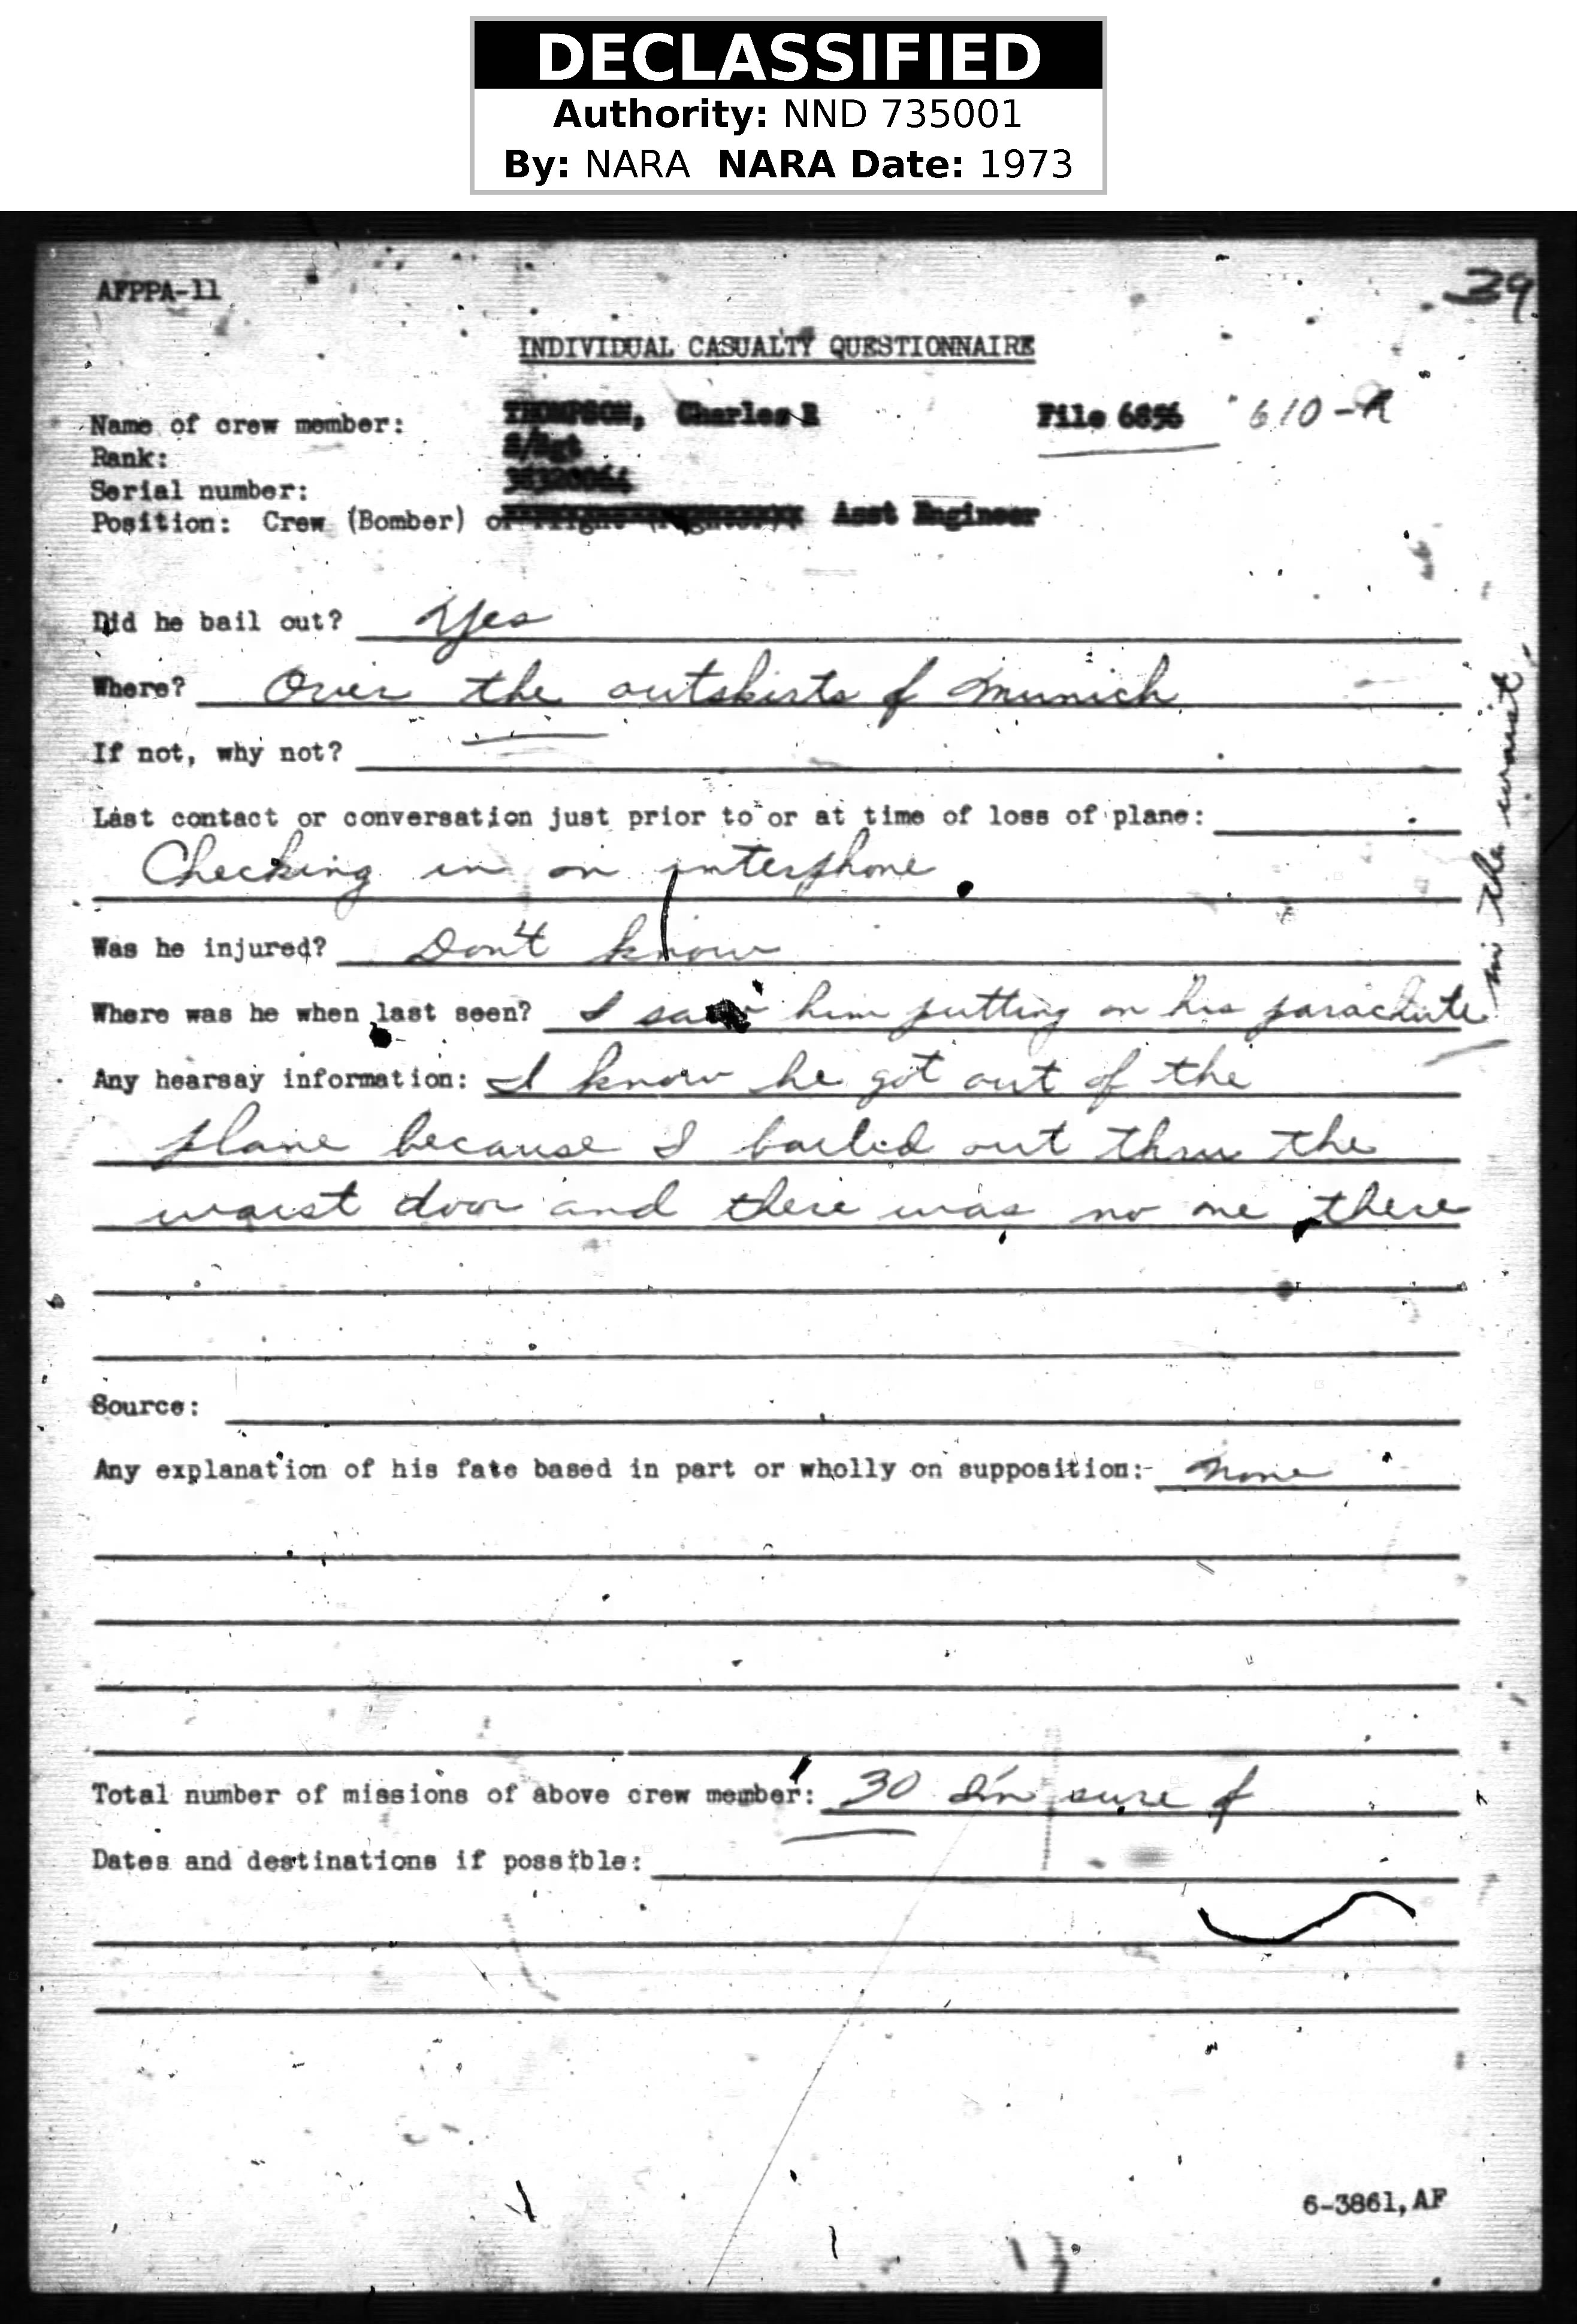 DECLASSIFIED
Authority: NND 735001
By: NARA NARA Date: 1973
AFPPA-11
39
INDIVIDUAL CASUALTY QUESTIONNAIRE
Name of crew member: THOMPSON, Charles R File 6856 610-R
Rank: S/Sgt
Serial number: 38320064
Position: Crew (Bomber) or Flight (Fighter) Asst Engineer
Did he bail out? Yes
Where? Over the outskirts of Munich
If not, why not?
Last contact or conversation just prior to or at time of loss of plane:
Checking in on interphone
Was he injured? Don't know
Where was he when last seen? I saw him putting on his parachute
in the waist.
Any hearsay information: I know he got out of the
plane because I bailed out thru the
waist door and there was no one there
Source:
Any explanation of his fate based in part or wholly on supposition:- None
Total number of missions of above crew member: 30 I'm sure of
Dates and destinations if possible:
6-3861,AF